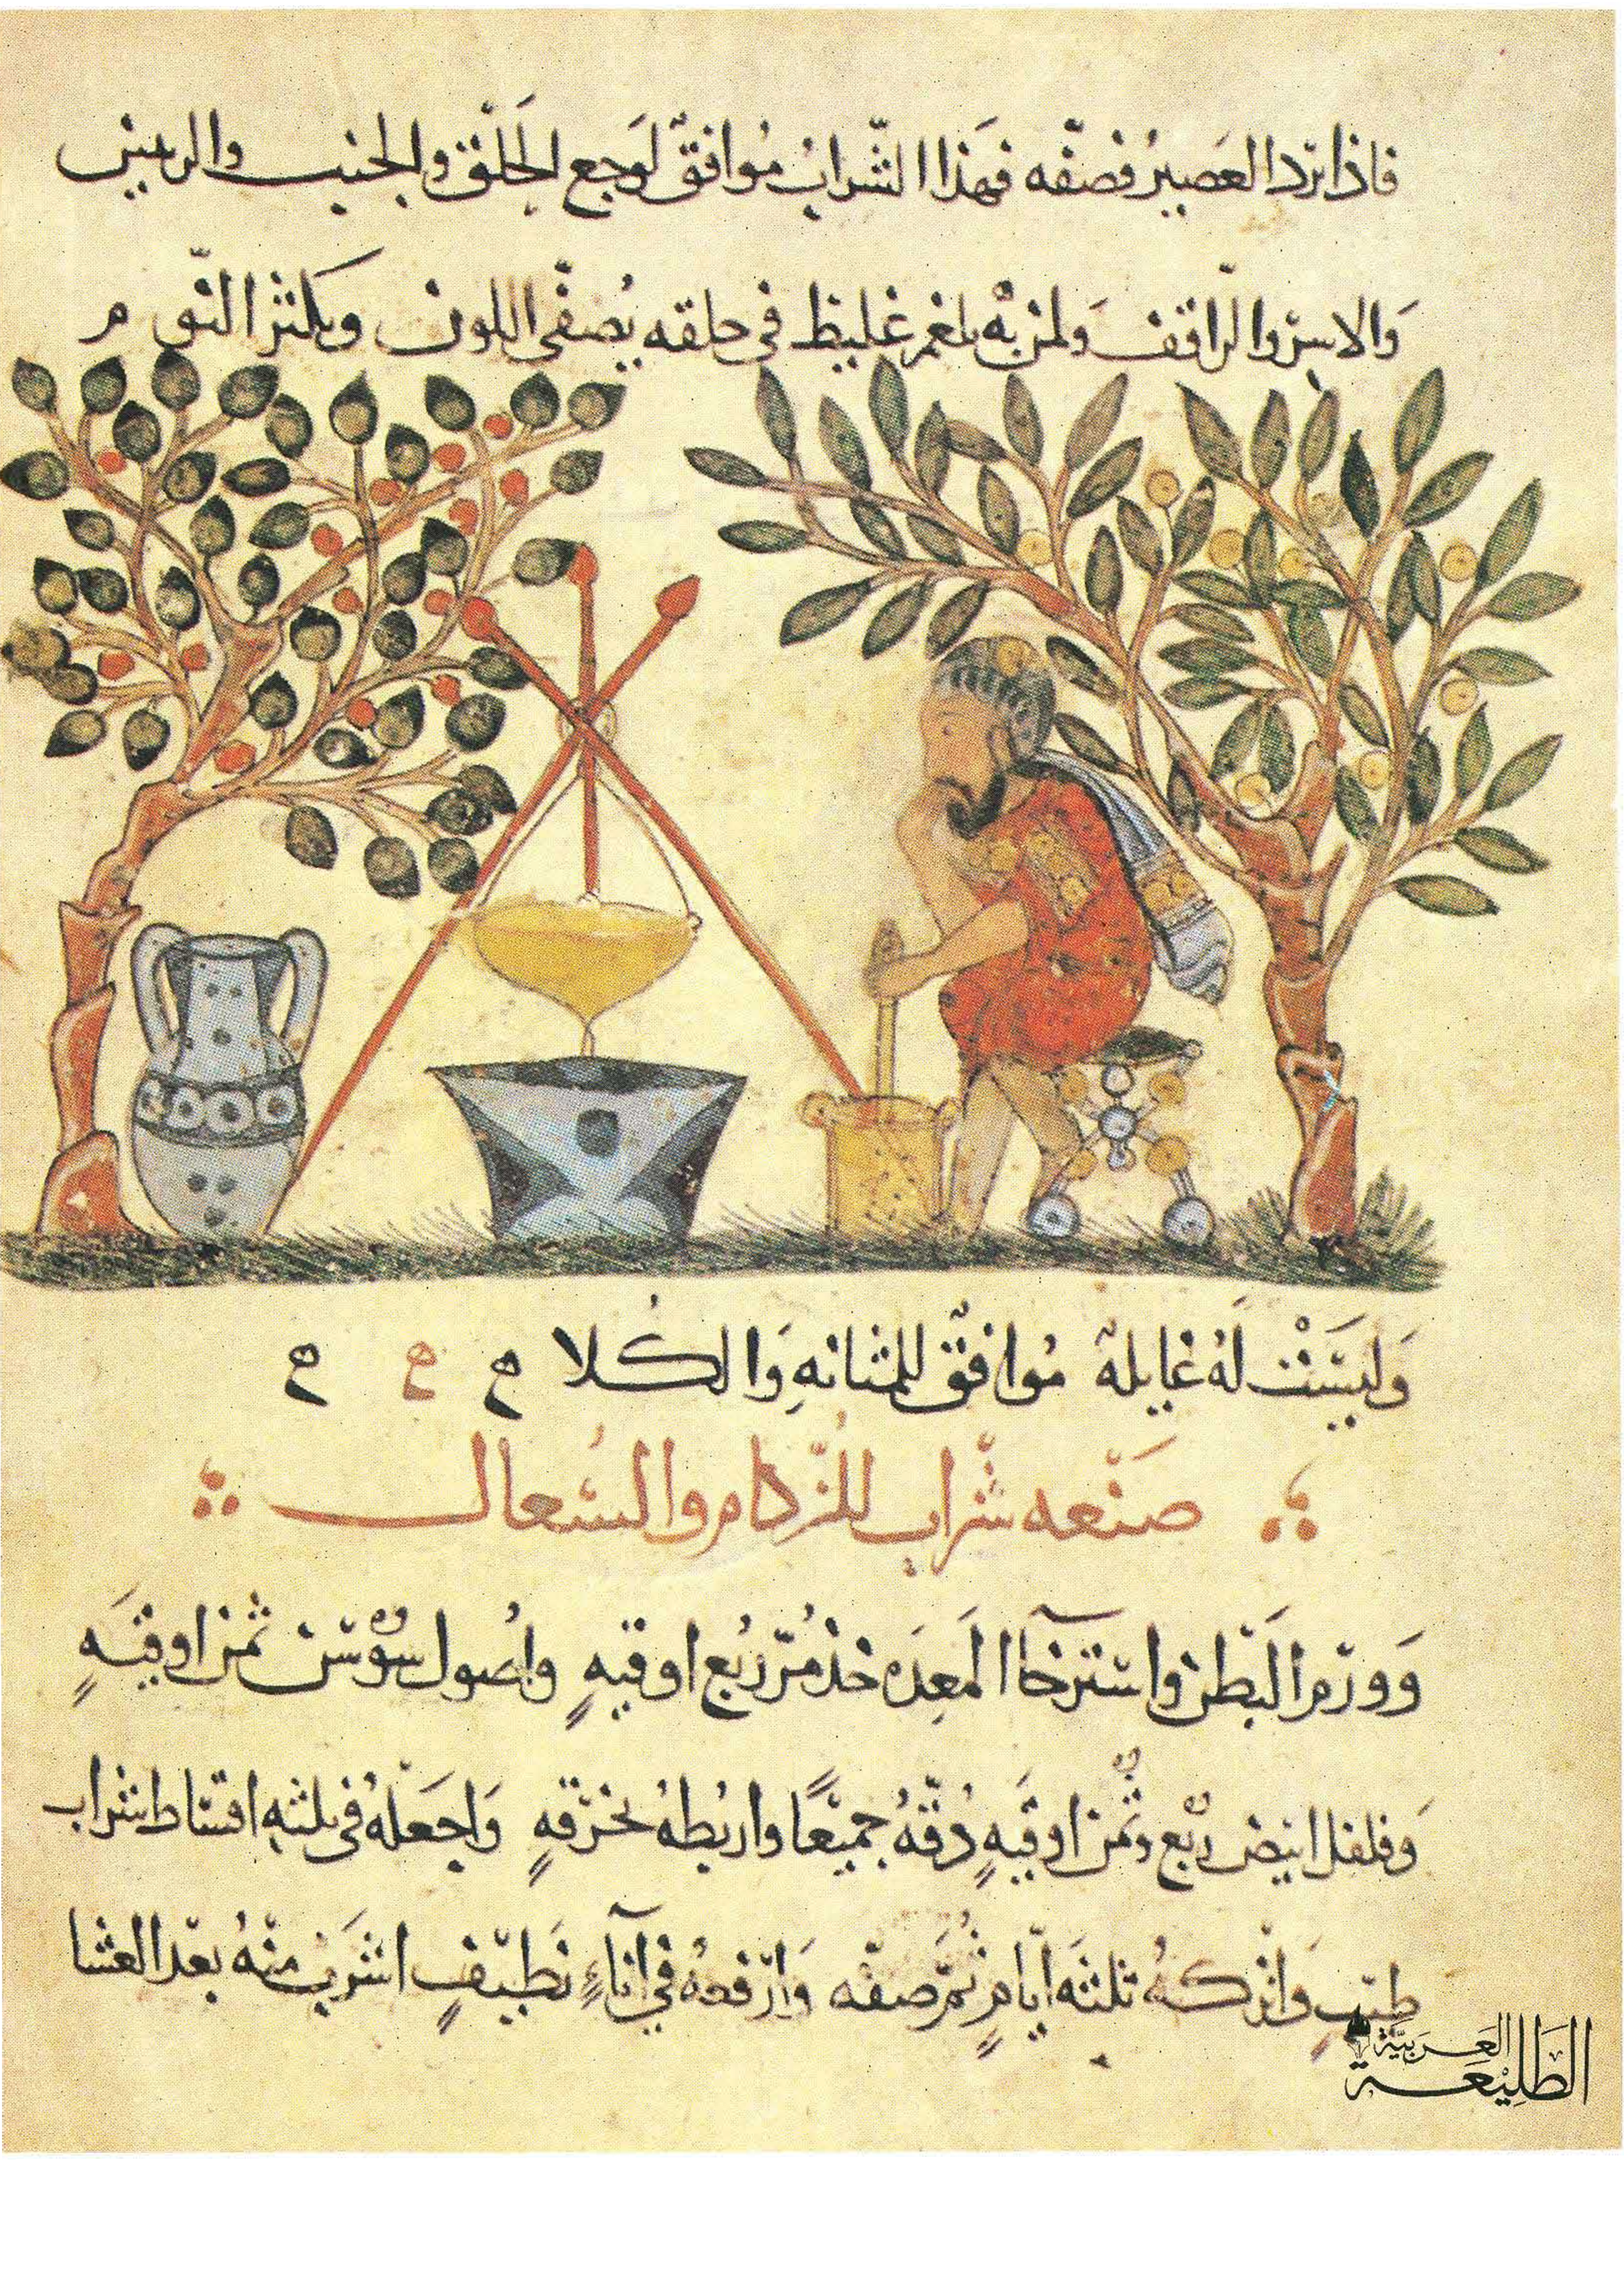 فاذا برد العصير فصفّه فهذا الشّراب موافق لوجع الحلق والجنب والرئتين
والاسر والراقف ولمن به بلغم غليظ في حلقه يصفّى اللون ويكثر النّوم
وَليسَتْ لَهُ غايلة مُوافقٌ للمثانهِ وَالكُلا ح ح ح
صَنْعه شّراب للزّكام والسُعال
وَورَم البَطن واسترخآ المَعِدَه خذ مُرّ رُبع اوقيهٍ واُصول سوْسن ثمن اوقيَهٍ
وَفلفل ابيض ربع وثُمن اوقيَهٍ دُقّهُ جميْعًا واربُطهُ بخرقهٍ وَاجعَلهُ في ثلثهِ اقساط شراب
طيّبٍ وَاتركهُ ثلثهَ ايّامٍ ثُمّ صفّه وَارْفعهُ في آناءٍ نَطيْفٍ اشرَب منْهُ بعْد العشا
الطَّلِيْعَة العَرَبيَّة